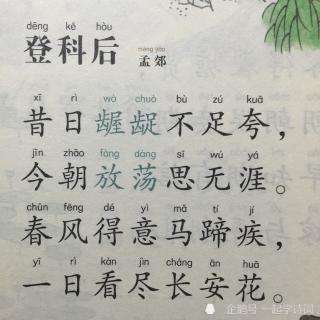 dēng kē hòu
登科后
mèng jiāo
孟郊
xī rì wò chuò bù zú kuā
昔日龌龊不足夸，
jīn zhāo fàng dàng sī wú yá
今朝放荡思无涯。
chūn fēng dé yì mǎ tí jí
春风得意马蹄疾，
yí rì kàn jìn cháng ān huā
一日看尽长安花。
企鹅号 一起学诗词